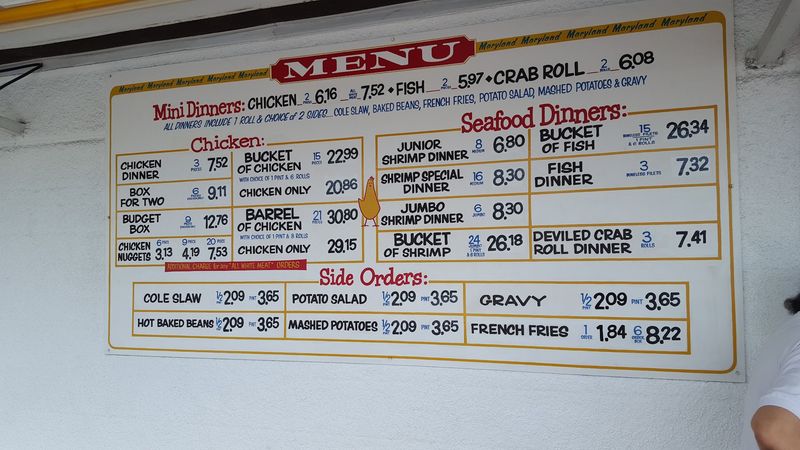 Maryland Maryland Maryland Maryland Maryland Maryland
MENU
Maryland Maryland Maryland Maryland Maryland Maryland
Mini Dinners: CHICKEN 2 6.16 7.52 • FISH 2 5.97 • CRAB ROLL 2 6.08
ALL DINNERS INCLUDE 1 ROLL & CHOICE of 2 SIDES... COLE SLAW, BAKED BEANS, FRENCH FRIES, POTATO SALAD, MASHED POTATOES & GRAVY
Chicken:
CHICKEN DINNER 3 PIECES 7.52
BOX FOR TWO 6 PIECES 9.11
BUDGET BOX 9 PIECES 12.76
CHICKEN NUGGETS 6 PCS 3.13 9 PCS 4.19 20 PCS 7.53
BUCKET OF CHICKEN 15 PIECES 22.99
WITH CHOICE OF 1 PINT & 6 ROLLS
CHICKEN ONLY 20.86
BARREL OF CHICKEN 21 PIECES 30.80
WITH CHOICE OF 1 PINT & 8 ROLLS
CHICKEN ONLY 29.15
ADDITIONAL CHARGE for any "ALL WHITE MEAT" ORDERS
Seafood Dinners:
JUNIOR SHRIMP DINNER 8 MEDIUM 6.80
SHRIMP SPECIAL DINNER 16 MEDIUM 8.30
JUMBO SHRIMP DINNER 6 JUMBO 8.30
BUCKET OF SHRIMP 24 JUMBO 1 PINT & 6 ROLLS 26.18
BUCKET OF FISH 15 BONELESS FILETS 1 PINT & 6 ROLLS 26.34
FISH DINNER 3 BONELESS FILETS 7.32
DEVILED CRAB ROLL DINNER 3 ROLLS 7.41
Side Orders:
COLE SLAW 1/2 PINT 2.09 PINT 3.65
POTATO SALAD 1/2 PINT 2.09 PINT 3.65
GRAVY 1/2 PINT 2.09 PINT 3.65
HOT BAKED BEANS 1/2 PINT 2.09 PINT 3.65
MASHED POTATOES 1/2 PINT 2.09 PINT 3.65
FRENCH FRIES 1 ORDER 1.84 6 ORDER BOX 8.22